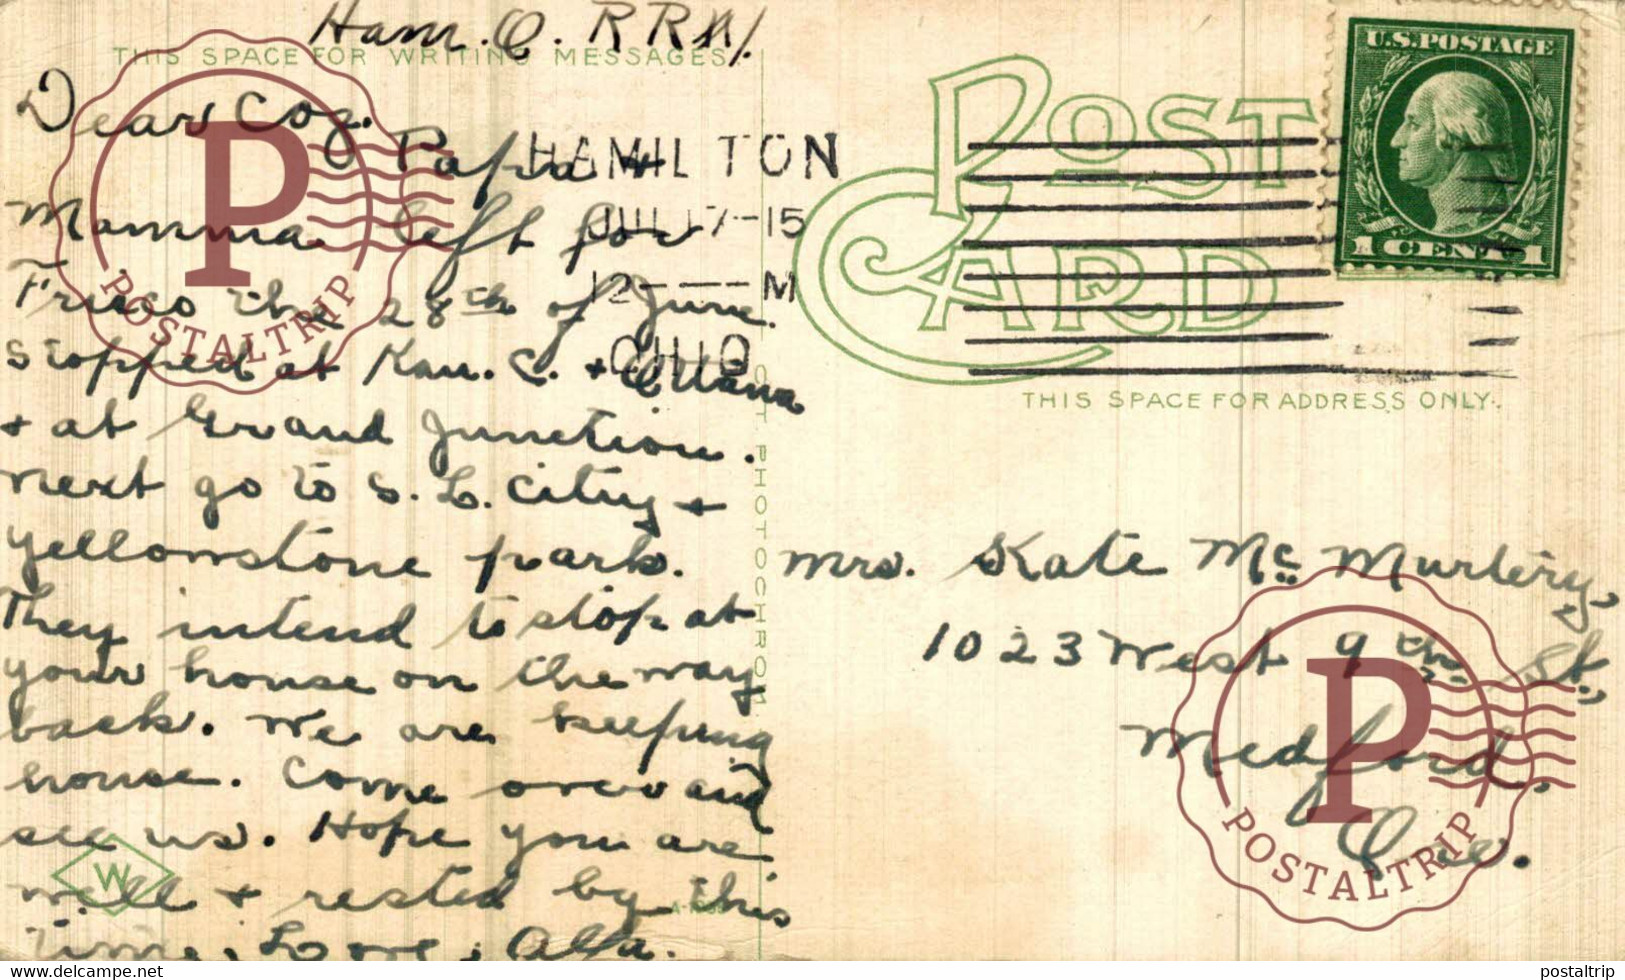 Ham. O. RR
THIS SPACE FOR WRITING MESSAGES
Dear Coz.
Papa +
Mamma left for
Frisco the 28th of June.
Stopped at Kan. C. + Ottawa
+ at Grand Junction.
next go to S. L. City +
yellowstone park.
They intend to stop at
your house on the way
back. We are keeping
house. Come over and
see us. Hope you are
well + rested by this
time. Love,
W
POST CARD
THIS SPACE FOR ADDRESS ONLY.
HAMILTON
JUL 17-15
12---M
OHIO
U.S. POSTAGE
1 CENT 1
Mrs. Kate McMurtery,
1023 West 9th St.,
Medford,
Ore.
P
POSTALTRIP
P
POSTALTRIP
www.delcampe.net
postaltrip